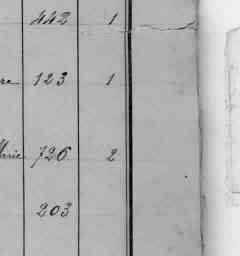 442 1
re 123 1
Marie 726 2
203